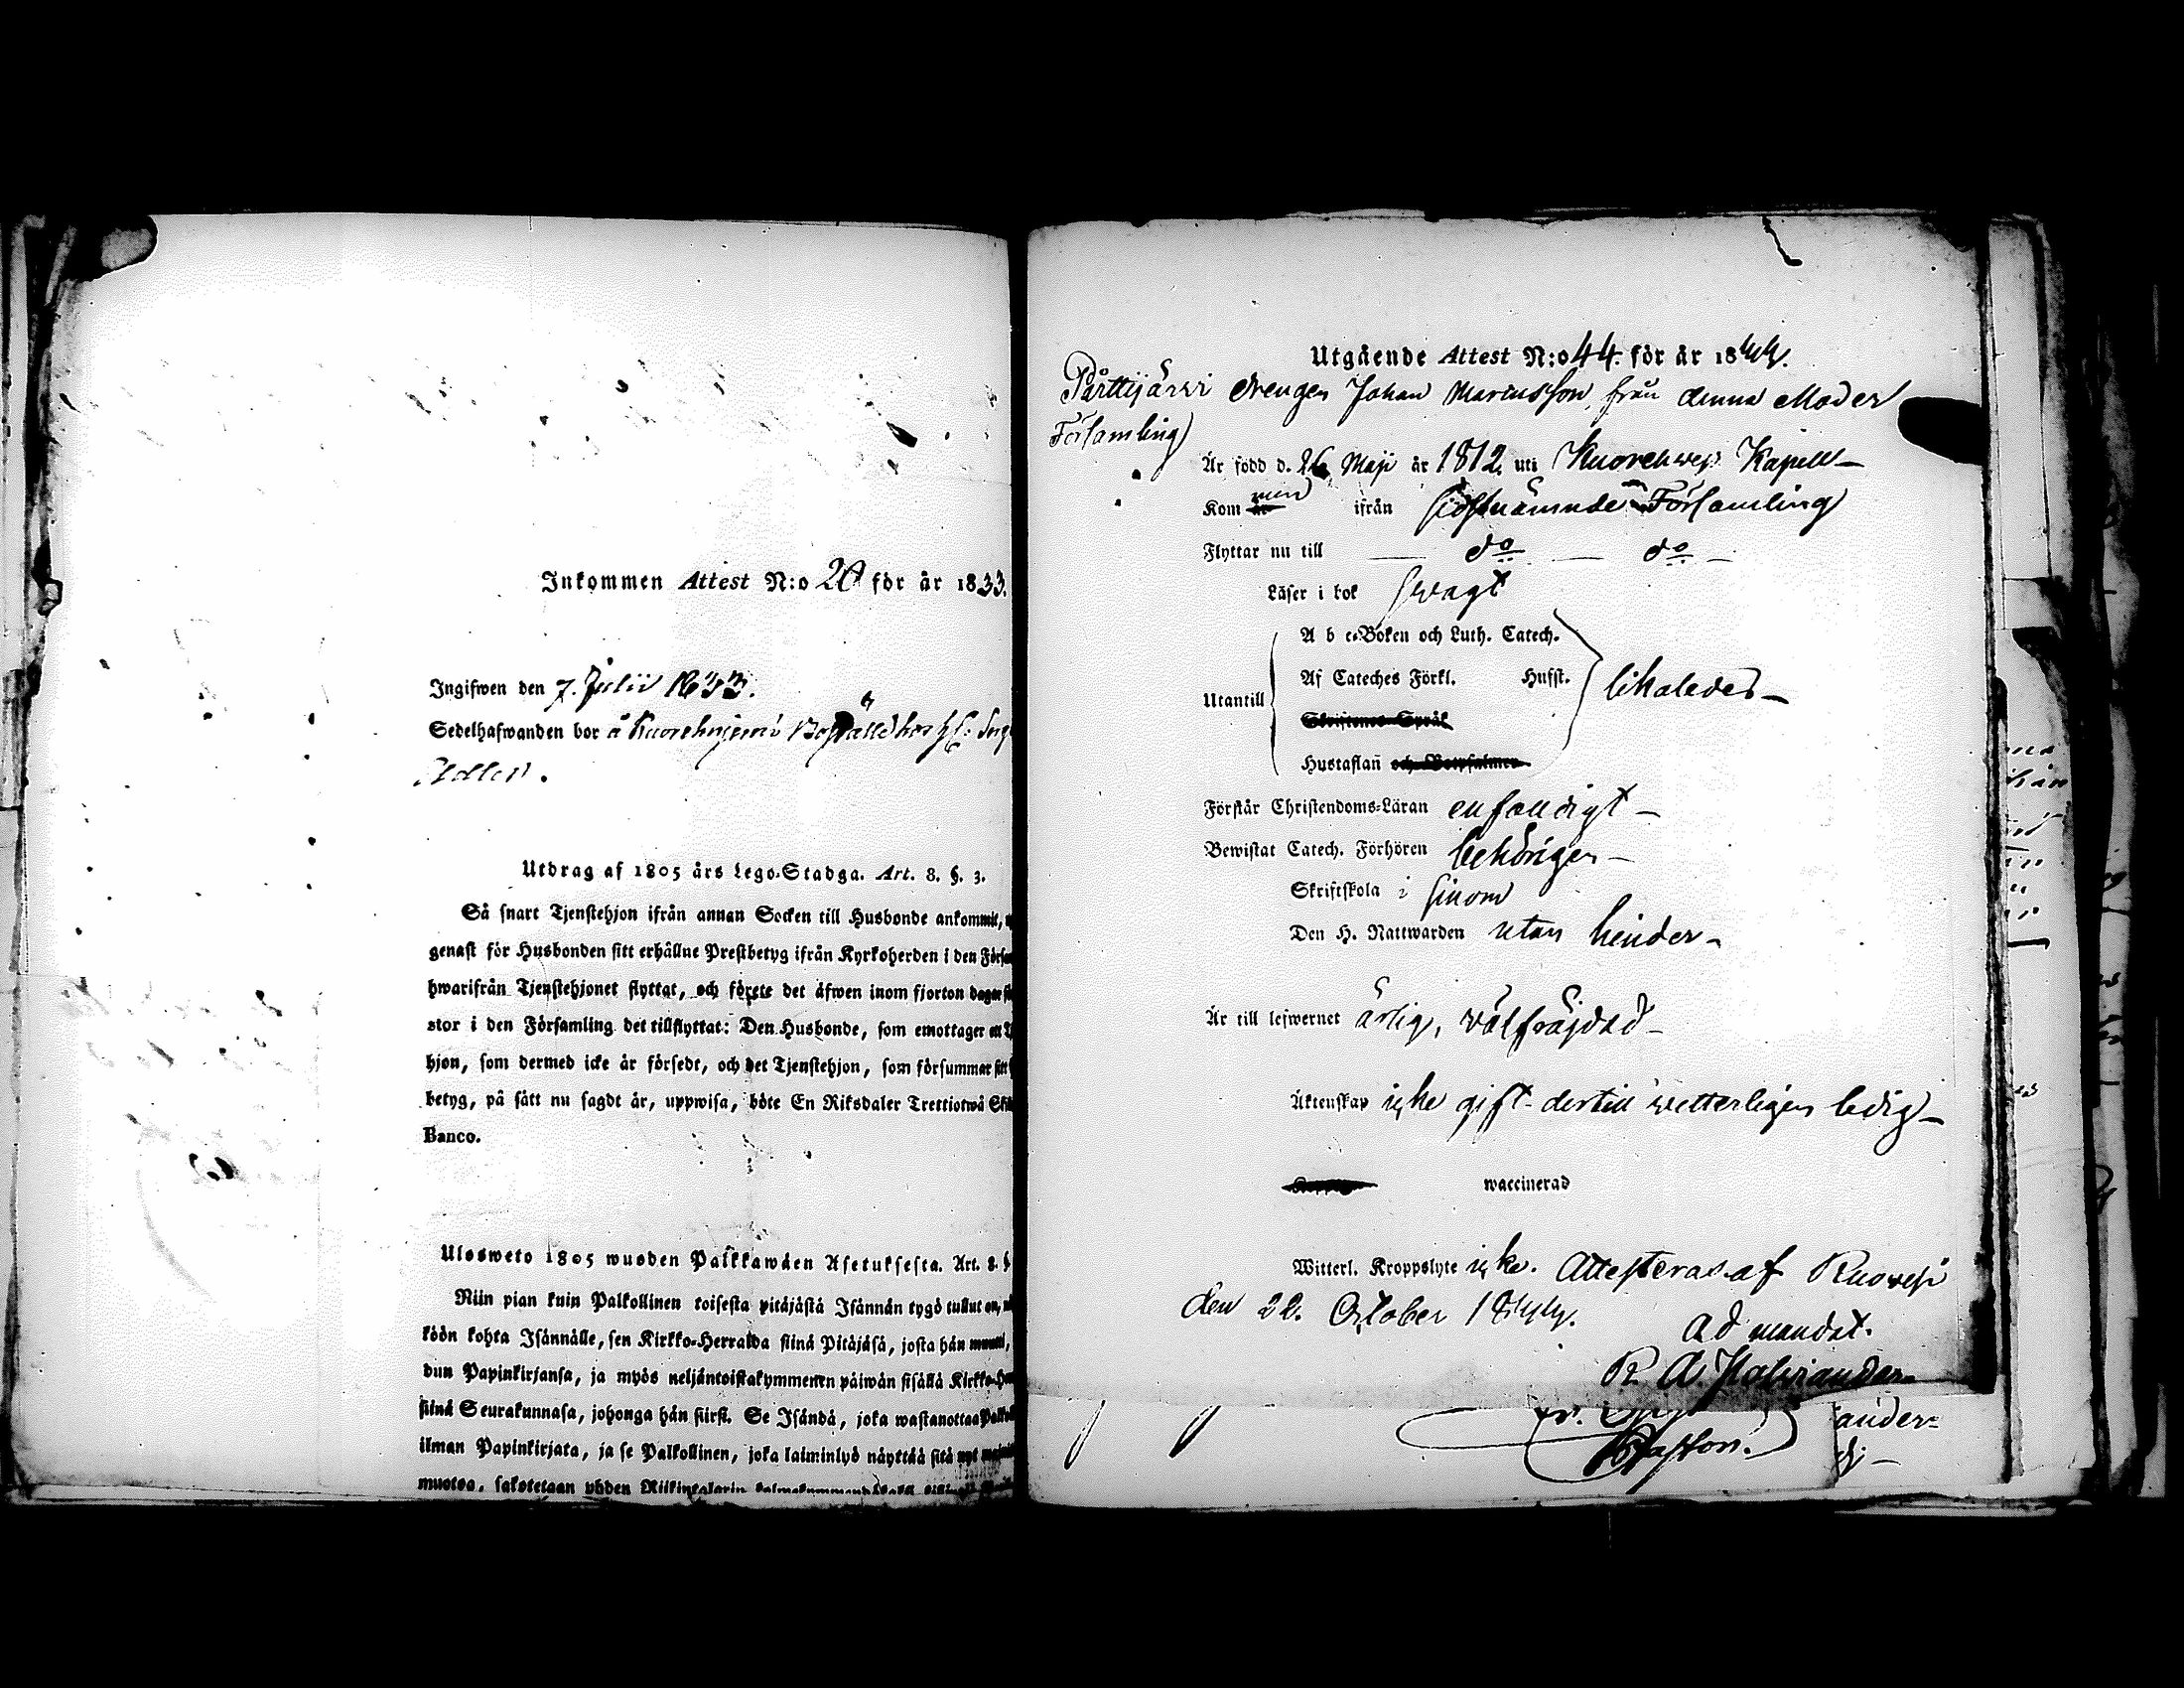 Inkommen Attest N:o 20 för år 1833.
Ingifwen den 7. Julii 1833.
Sedelhafwanden bor å Kuorehniemi Boställe hos
Utdrag af 1805 års Lego-Stadga. Art. 8. §. 3.
Så snart Tjenstehjon ifrån annan Socken till Husbonde ankommit,
genast för Husbonden sitt erhållne Prestbetyg ifrån Kyrkoherden i den
hwarifrån Tjenstehjonet flyttat, och förete det äfwen inom fjorton dagar
stor i den Församling det tillflyttat: Den Husbonde, som emottager ett
hjon, som dermed icke är försedt, och det Tjenstehjon, som försummar sitt
betyg, på sätt nu sagdt är, uppwisa, böte En Riksdaler Trettiotwå
Banco.
Ulosweto 1805 wuoden Palkkawäen Asetuksesta. Art. 8. §
Niin pian kuin Palkollinen toisesta pitäjästä Isännän tygö tullut on,
köön kohta Isännälle, sen Kirkko-Herralda siinä Pitäjäsä, josta hän muutti,
dun Papinkirjansa, ja myös neljäntoistakymmenen päiwän sisällä
siinä Seurakunnasa, johonga hän siirsi. Se Isändä, joka wastanottaa
ilman Papinkirjata, ja se Palkollinen, joka laiminlyö näyttää sitä nyt
muotoa, sakotetaan yhden
Utgående Attest N:o 44. för år 1844.
Pärttijärwi drengen Johan Mariusson, från denna Moder
Församling
Är född d. 26 Maji år 1812, uti Kuorehwesi Kapell
Kom ifrån sistnämnde Församling
Flyttar nu till — do — do —
Läser i bok swagt
A b c-Boken och Luth. Catech.
Af Cateches Förkl. Hufst.
Utantill likaledes
Skriftenes Språk
Hustaflan och Botpsalmer
Förstår Christendoms-Läran enfaldigt
Bewistat Catech. Förhören behörigen
Skriftskola i sinom
Den H. Nattwarden utan hinder
Är till lefwernet ärlig, wälfräjdad
Äktenskap icke gift dertill wetterligen ledig
waccinerad
Witterl. Kroppslyte icke. Attesteras af Ruowesi
den 22. October 1844.
Ad mandat.
R A
ander=